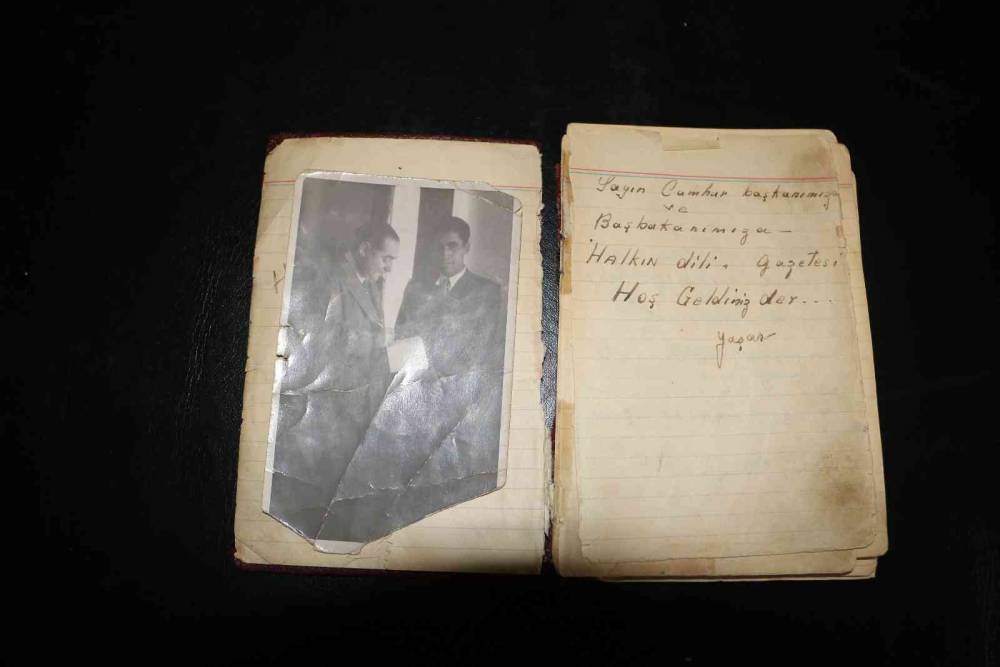 Sayın Cumhur başkanımıza
ve
Başbakanımıza —
HALKIN dili. gazetesi
Hoş Geldiniz der...
Yaşar